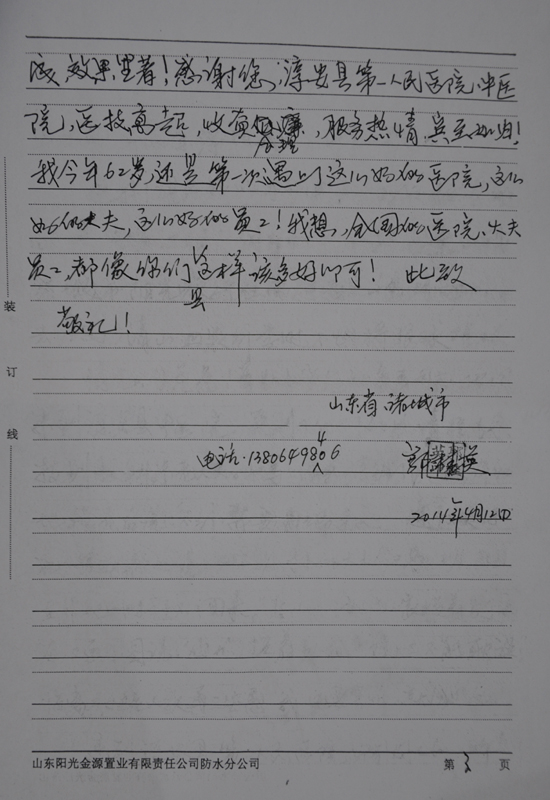 效果显著！感谢您，淳安县第一人民医院，中医
院，医技高超，收费合理，服务热情，
我今年62岁，还是第一次遇上这么好的医院，这么
好的大夫，这么好的员工！我想，全国的医院、大夫
员工，都像你们县这样该多好！ 此致
敬礼！
装
订
线
山东省诸城市
电话：13806498406
2014年4月12日
山东阳光金源置业有限责任公司防水分公司
第 3 页